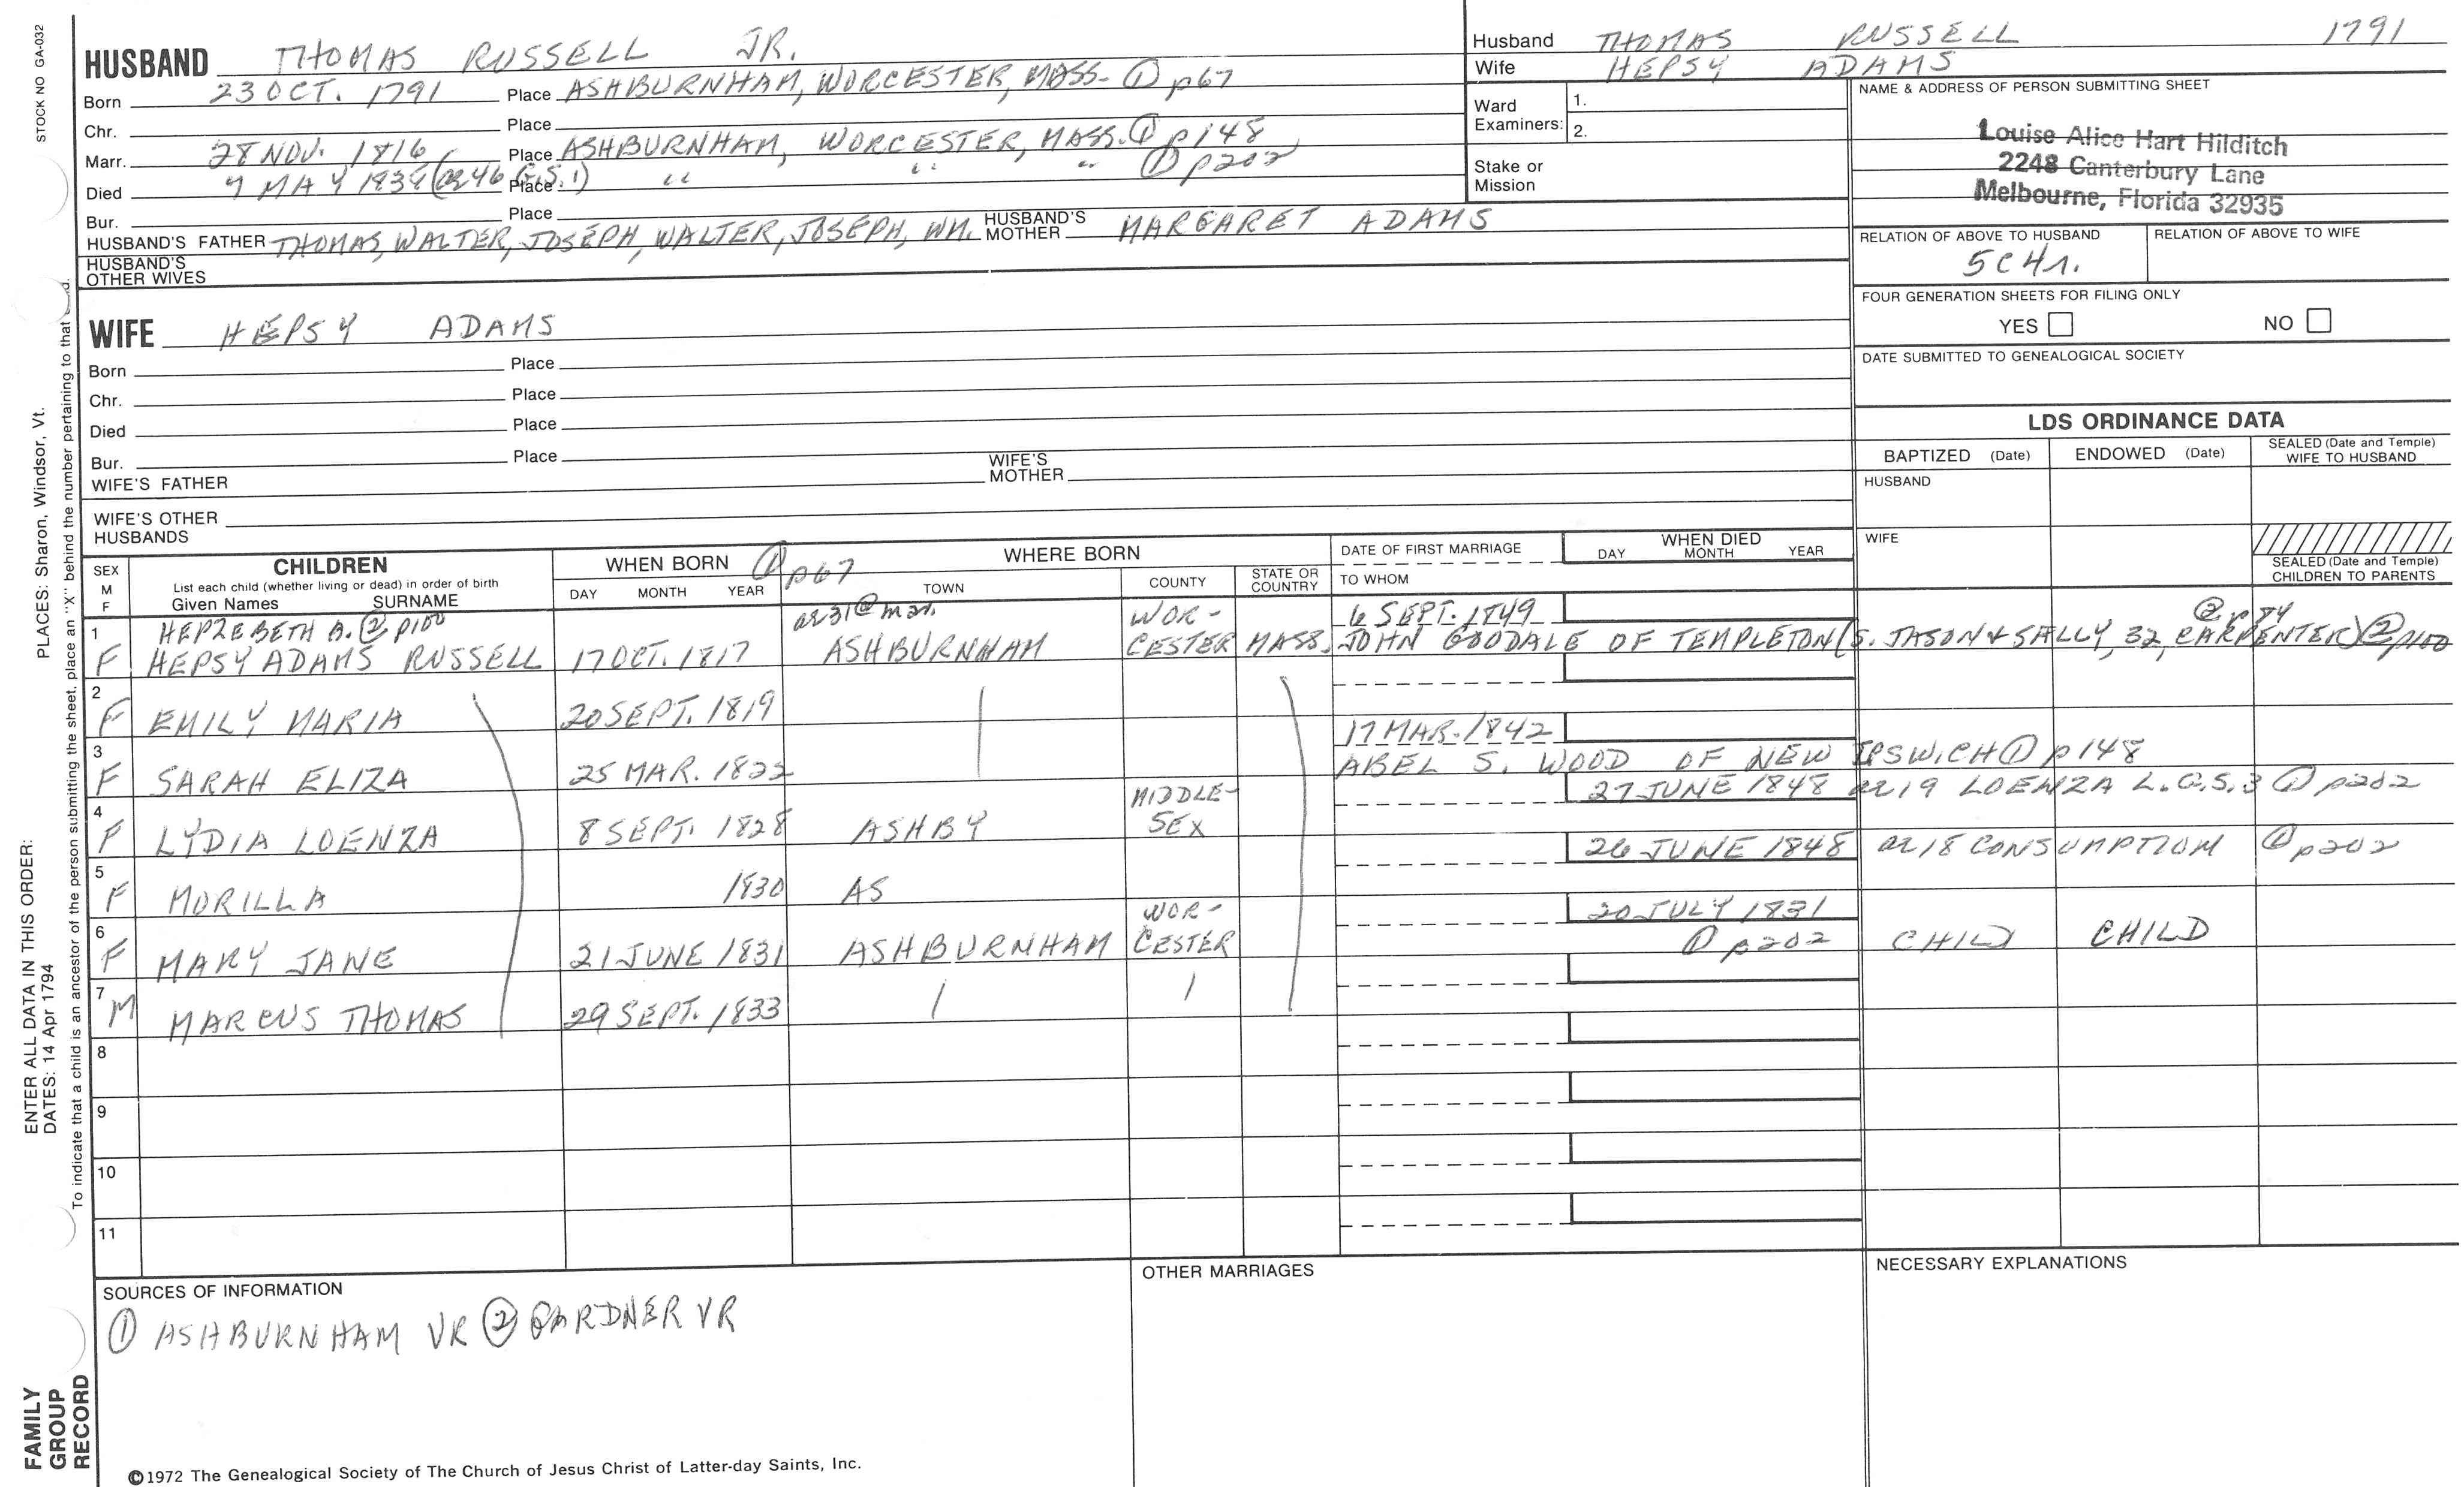 STOCK NO GA-032
HUSBAND THOMAS RUSSELL JR.
Born 23 OCT. 1791 Place ASHBURNHAM, WORCESTER, MASS. ① p67
Chr. Place
Marr. 28 NOV. 1816 Place ASHBURNHAM, WORCESTER, MASS. ① p148
Died MAY (ae 46 G.S.1) Place " " " ① p202
Bur. Place
HUSBAND'S FATHER THOMAS, WALTER, JOSEPH, WALTER, JOSEPH, WM. HUSBAND'S MOTHER MARGARET ADAMS
HUSBAND'S OTHER WIVES
WIFE HEPSY ADAMS
Born Place
Chr. Place
Died Place
Bur. Place
WIFE'S FATHER WIFE'S MOTHER
WIFE'S OTHER HUSBANDS
Husband THOMAS RUSSELL 1791
Wife HEPSY ADAMS
Ward Examiners: 1.
2.
Stake or Mission
NAME & ADDRESS OF PERSON SUBMITTING SHEET
Louise Alice Hart Hilditch
2248 Canterbury Lane
Melbourne, Florida 32935
RELATION OF ABOVE TO HUSBAND RELATION OF ABOVE TO WIFE
5C4r.
FOUR GENERATION SHEETS FOR FILING ONLY
YES NO
DATE SUBMITTED TO GENEALOGICAL SOCIETY
LDS ORDINANCE DATA
BAPTIZED (Date) ENDOWED (Date) SEALED (Date and Temple) WIFE TO HUSBAND
HUSBAND
WIFE
SEALED (Date and Temple) CHILDREN TO PARENTS
SEX M F
CHILDREN
List each child (whether living or dead) in order of birth
Given Names SURNAME
WHEN BORN ① p67
DAY MONTH YEAR
WHERE BORN
TOWN COUNTY STATE OR COUNTRY
DATE OF FIRST MARRIAGE
TO WHOM
WHEN DIED
DAY MONTH YEAR
1 HEPZEBETH A. ② p100 ae 31 @ mar. WOR- 6 SEPT. 1849 ② p84
F HEPSY ADAMS RUSSELL 17 OCT. 1817 ASHBURNHAM CESTER MASS. JOHN GOODALE OF TEMPLETON (S. JASON & SALLY, 32, CARPENTER) ② p100
2
F EMILY MARIA 20 SEPT. 1819
3 17 MAR. 1842
F SARAH ELIZA 25 MAR. 1822 ABEL S. WOOD OF NEW IPSWICH ① p148
4 MIDDLE- 27 JUNE 1848 ae 19 LOENZA L. G.S.3 ① p202
F LYDIA LOENZA 8 SEPT. 1828 ASHBY SEX
5 26 JUNE 1848 ae 18 CONSUMPTION ① p202
F MORILLA 1830 AS
6 WOR- 20 JULY 1831
F MARY JANE 21 JUNE 1831 ASHBURNHAM CESTER ① p202 CHILD CHILD
7
M MARCUS THOMAS 29 SEPT. 1833
8
9
10
11
SOURCES OF INFORMATION
① ASHBURNHAM VR ② GARDNER VR
OTHER MARRIAGES
NECESSARY EXPLANATIONS
©1972 The Genealogical Society of The Church of Jesus Christ of Latter-day Saints, Inc.
FAMILY GROUP RECORD
ENTER ALL DATA IN THIS ORDER:
DATES: 14 Apr 1794
PLACES: Sharon, Windsor, Vt.
To indicate that a child is an ancestor of the person submitting the sheet, place an "X" behind the number pertaining to that